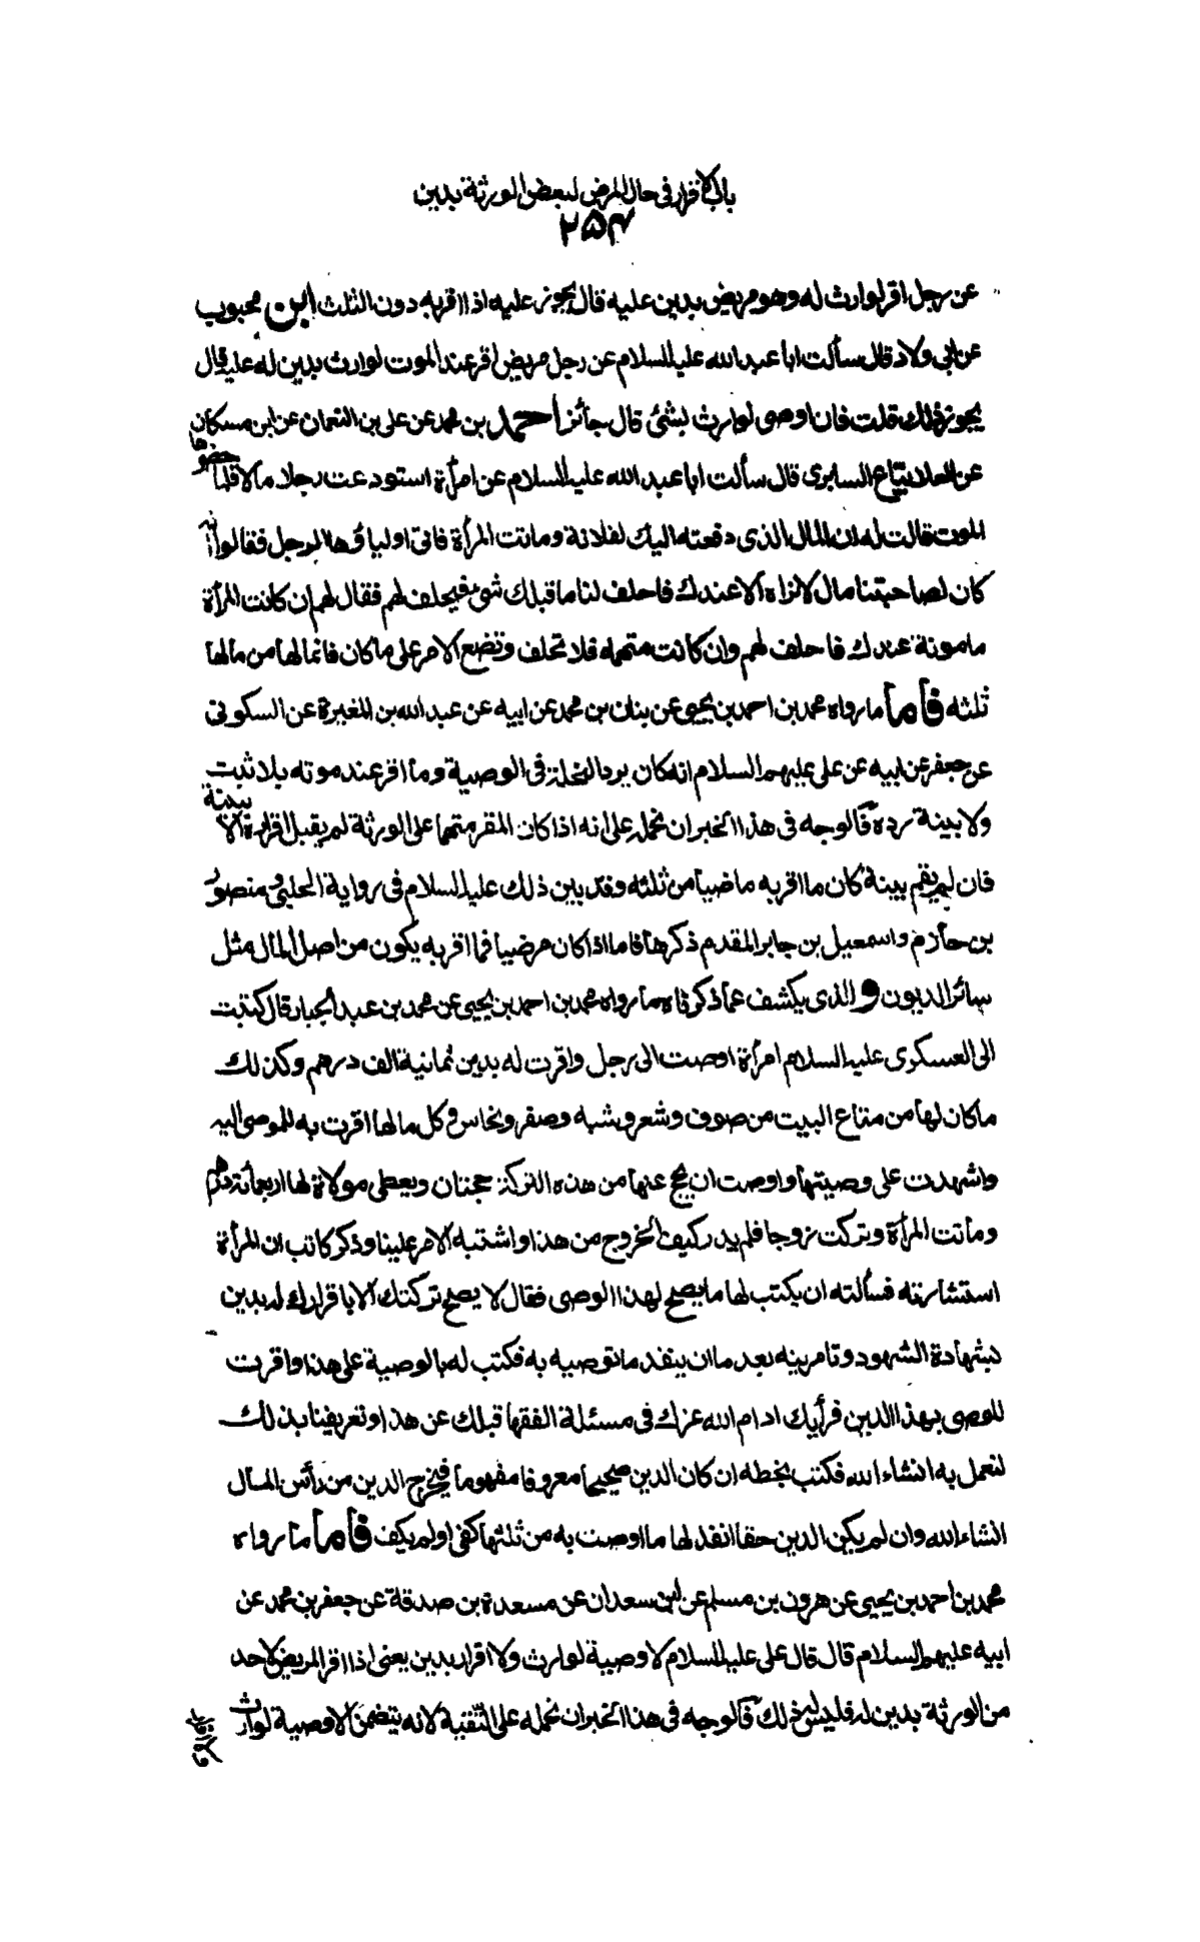 باب الاقرار في حال المرض لبعض الورثة بدين
٢٥٤
عن رجل اقر لوارث له وهو مريض بدين عليه قال يجوز عليه اذا اقر به دون الثلث ابن محبوب
عن ابي ولاد قال سألت ابا عبد الله عليه السلام عن رجل مريض اقر عند الموت لوارث بدين له عليه قال
يجوز ذلك قلت فان اوصى لوارث بشئ قال جائز احمد بن محمد عن علي بن النعمان عن ابن مسكان
عن العلا بياع السابري قال سألت ابا عبد الله عليه السلام عن امرأة استودعت رجلا مالا فلما حضرها
الموت قالت له ان المال الذي دفعته اليك لفلانة وماتت المرأة فاتى اولياؤها الرجل فقالوا انه
كان لصاحبتنا مال لا نراه الا عندك فاحلف لنا ما قبلك شئ فيحلف لهم فقال لهم ان كانت المرأة
مامونة عندك فاحلف لهم وان كانت متهمه فلا تحلف وتضع الامر على ما كان فانما لها من مالها
ثلثه فاما ما رواه محمد بن احمد بن يحيى عن بنان بن محمد عن ابيه عن عبد الله بن المغيرة عن السكوني
عن جعفر عن ابيه عن علي عليهم السلام انه كان يرد النحلة في الوصية وما اقر عند موته بلا ثبت
ولا بينة رده فالوجه في هذا الخبر ان نحمله على انه اذا كان المقر متهما على الورثة لم يقبل اقراره الا ببينة
فان لم يقم بينة كان ما اقر به ماضيا من ثلثه وقد بين ذلك عليه السلام في رواية الحلبي ومنصور
بن حازم واسمعيل بن جابر المقدم ذكرها فاما اذا كان مرضيا فما اقر به يكون من اصل المال مثل
سائر الديون و الذي يكشف عما ذكرناه ما رواه محمد بن احمد بن يحيى عن محمد بن عبد الجبار قال كتبت
الى العسكري عليه السلام امرأة اوصت الى رجل واقرت له بدين ثمانية الف درهم وكذلك
ما كان لها من متاع البيت من صوف وشعر وشبه وصفر ونحاس وكل مالها اقرت به للموصى اليه
واشهدت على وصيتها واوصت ان يحج عنها من هذه التركة حجتان ويعطى مولاة لها اربعمائة درهم
وماتت المرأة وتركت زوجا فلم يدر كيف الخروج من هذا واشتبه الامر علينا وذكر كاتب ان المرأة
استشارته فسألته ان يكتب لها ما يصح لهذا الوصي فقال لا يصح تركتك الا باقرارك له بدين
بشهادة الشهود وتامرينه بعد ما ان ينفد ما توصيه به فكتب له بالوصية على هذا واقرت
للوصي بهذا الدين فرأيك ادام الله عزك في مسئلة الفقها قبلك عن هذا وتعريفنا بذلك
لنعمل به انشاء الله فكتب بخطه ان كان الدين صحيحا معروفا مفهوما فيخرج الدين من رأس المال
انشاء الله وان لم يكن الدين حقا انفذ لها ما اوصت به من ثلثها كفى او لم يكف فاما ما رواه
محمد بن احمد بن يحيى عن هرون بن مسلم عن ابن سعدان عن مسعدة بن صدقة عن جعفر بن محمد عن
ابيه عليهم السلام قال قال علي عليه السلام لا وصية لوارث ولا اقرار بدين يعني اذا اقر المريض لاحد
من الورثة بدين له فليس له ذلك فالوجه في هذا الخبر ان نحمله على التقية لانه يتضمن لا وصية لوارث